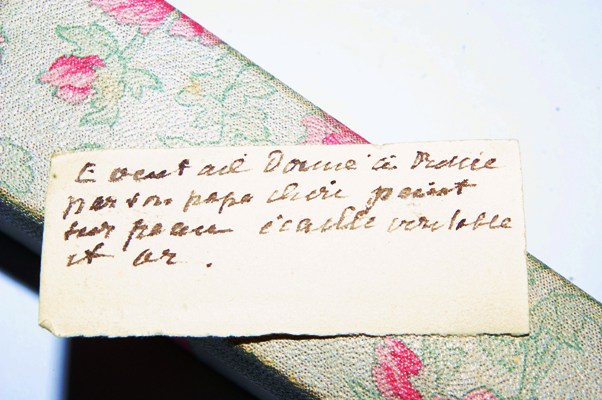 Eventail Donné à
par son papa cheri peint
sur peau écaille veritable
et or.